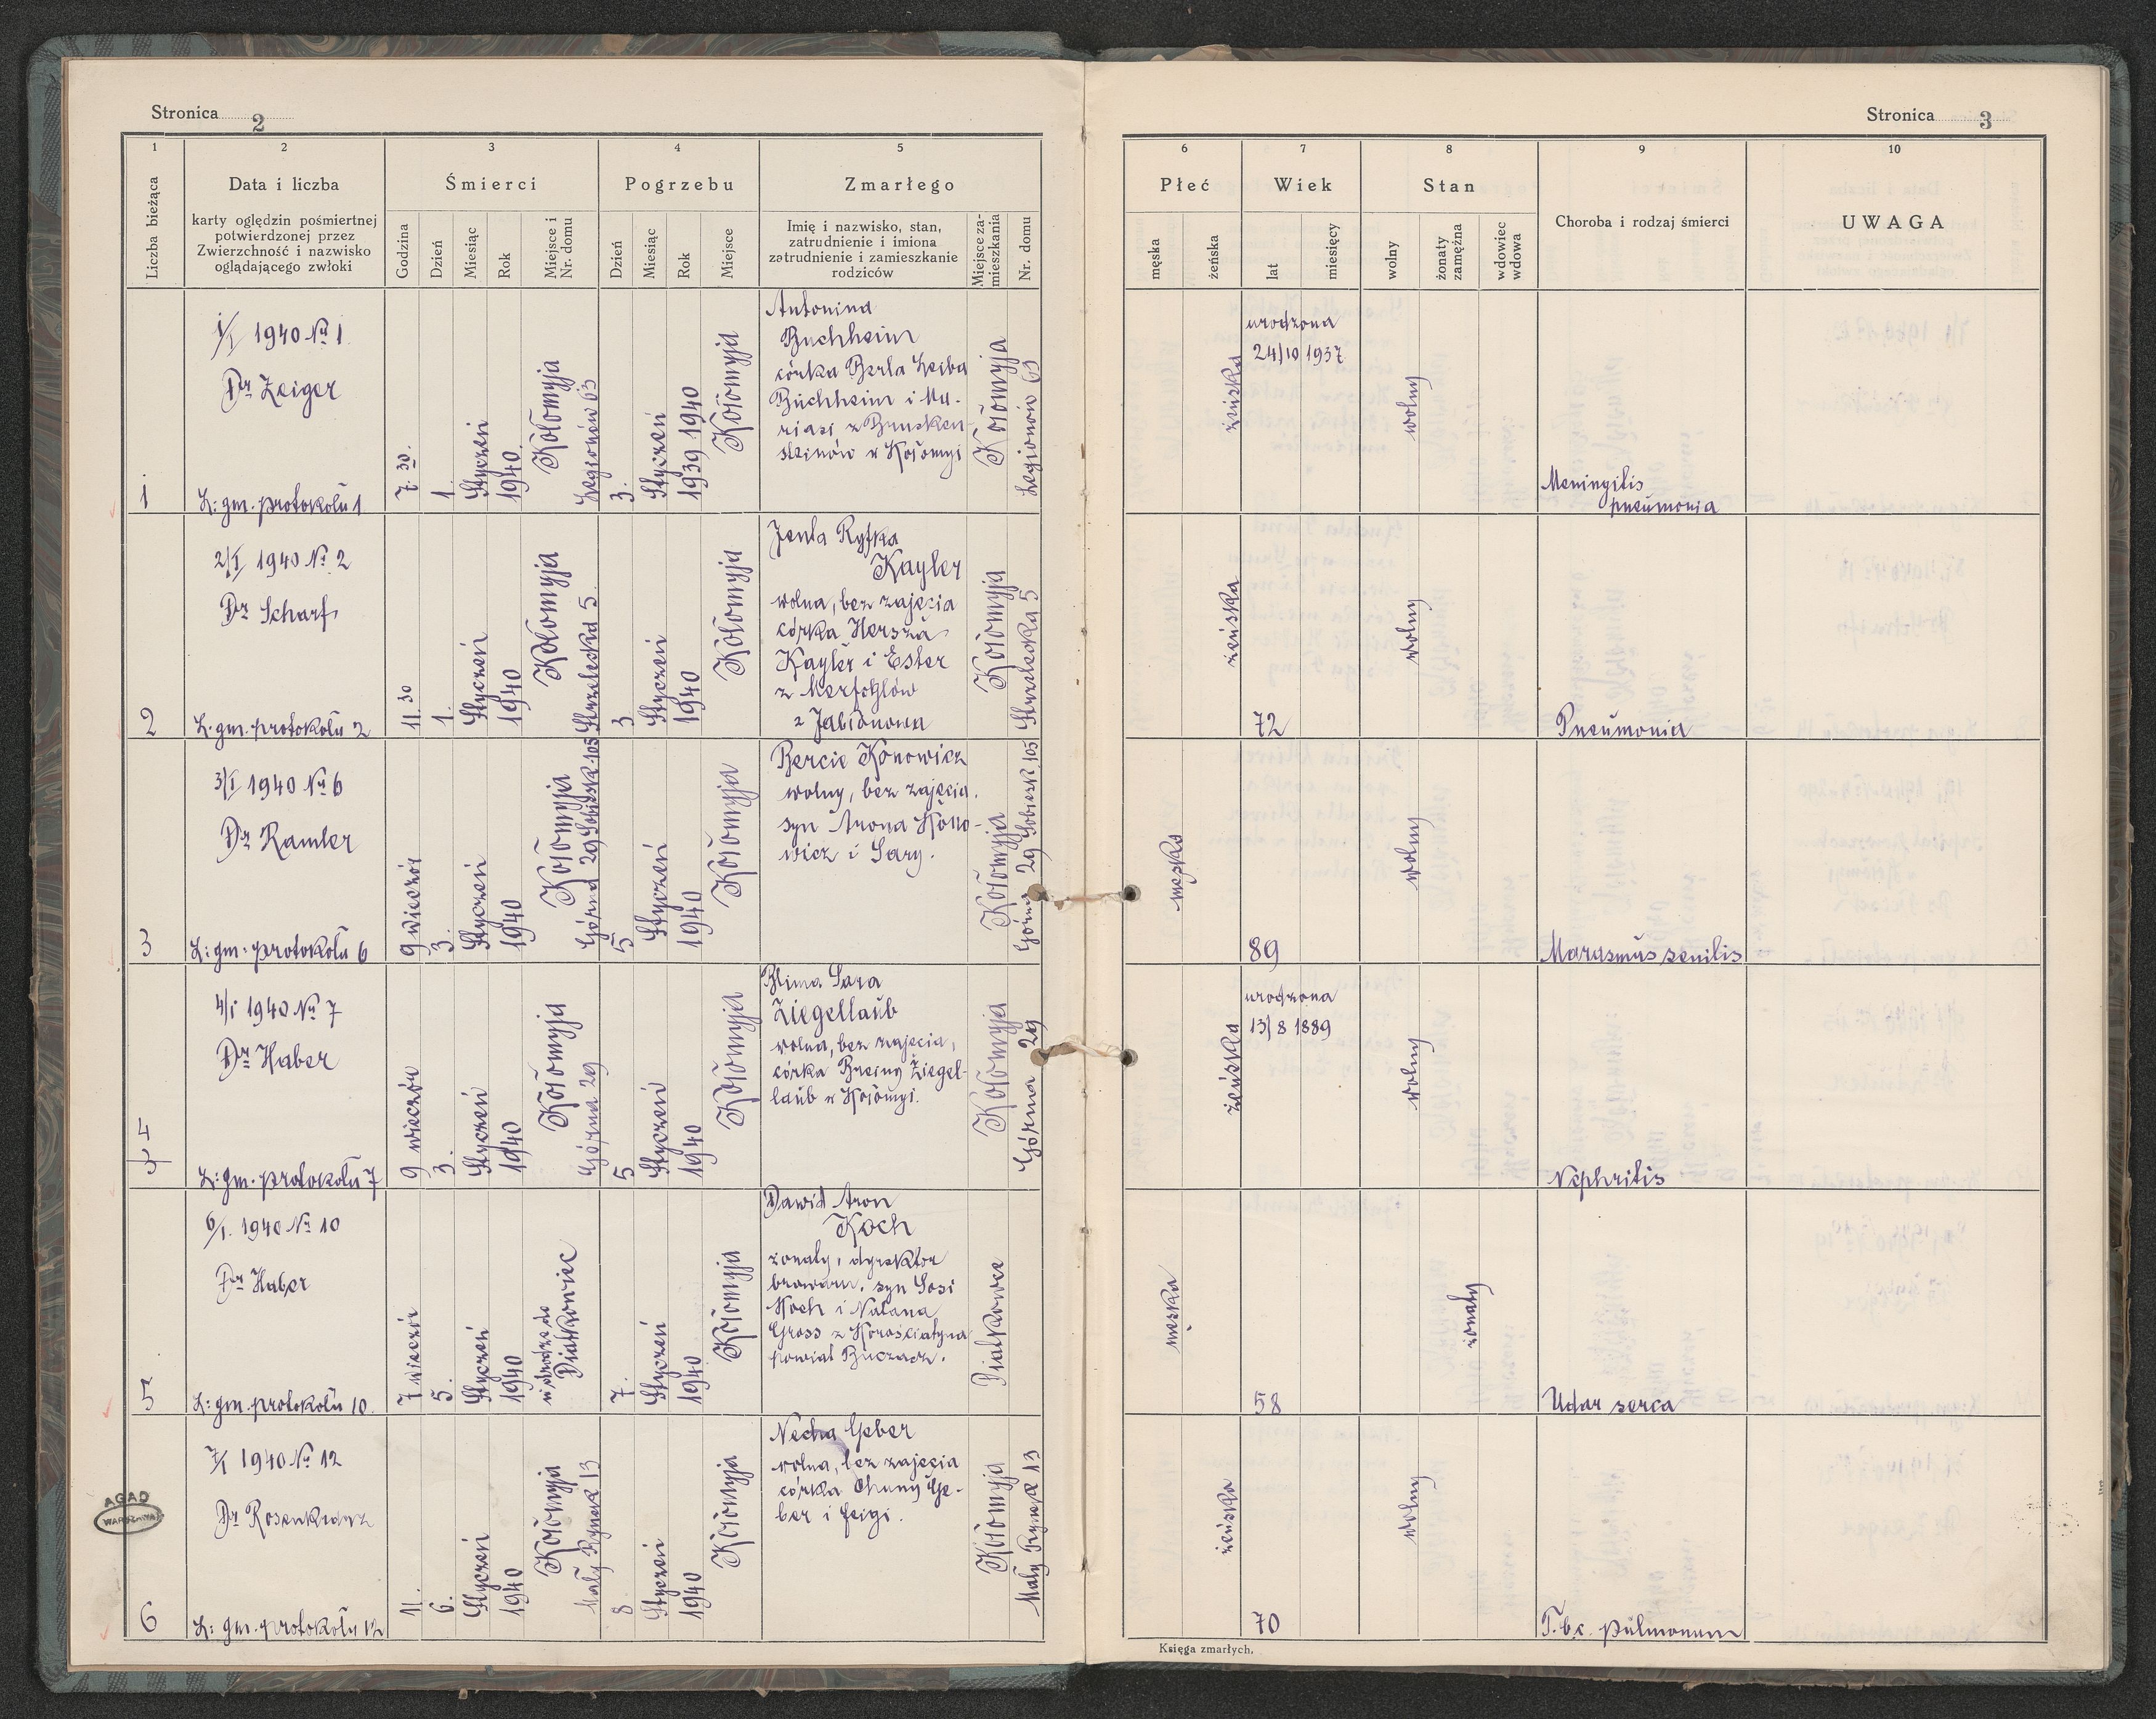 Stronica 2
1
2
3
4
5
Liczba bieżąca
Data i liczba
karty oględzin pośmiertnej
potwierdzonej przez
Zwierzchność i nazwisko
oglądającego zwłoki
Śmierci
Godzina
Dzień
Miesiąc
Rok
Miejsce i
Nr. domu
Pogrzebu
Dzień
Miesiąc
Rok
Miejsce
Zmarłego
Imię i nazwisko, stan,
zatrudnienie i imiona
zatrudnienie i zamieszkanie
rodziców
Miejsce za-
mieszkania
Nr. domu
1
1/I 1940 № 1
Dr Zeiger
L: gm. protokołu 1
7.30
1.
Styczeń
1940
Kołomyja
Legionów 63
3.
Styczeń
1939 1940
Kołomyja
Antonina
Buchheim
córka Berla Leiba
Buchheim i Ma-
riasi z Brucken-
steinów w Kołomyi
Kołomyja
Legionów 63
2
2/I 1940 № 2
Dr Scharf
L: gm. protokołu 2
11.30
1.
Styczeń
1940
Kołomyja
Strzelecka 5
3
Styczeń
1940
Kołomyja
Jenta Ryfka
Kayler
wolna, bez zajęcia
córka Hersza
Kayler i Ester
z
z Jabłonowa
Kołomyja
Strzelecka 5
3
3/I 1940 № 6
Dr Ramler
L: gm. protokołu 6
9 wieczór
3.
Styczeń
1940
Kołomyja
Górna 29 Sobiesk 105
5
Styczeń
1940
Kołomyja
Bercie Konowicz
wolny, bez zajęcia.
syn Arona Kono-
wicz i Sary.
Kołomyja
Górna 29 Sobiesk 105
4
L: gm. protokołu 7
4/I 1940 № 7
Dr Haber
9 wieczór
3.
Styczeń
1940
Kołomyja
Górna 29
5
Styczeń
1940
Kołomyja
Blima Sara
Ziegellaub
wolna, bez zajęcia,
córka Breiny Ziegel-
laub w Kołomyi.
Kołomyja
Górna 29
5
6/I. 1940 № 10
Dr Haber
L: gm. protokołu 10
7 wieczór
5.
Styczeń
1940
w drodze do
Diatkowiec
7.
Styczeń
1940
Kołomyja
Dawid Aron
Koch
żonaty, dyrektor
browaru. syn Sosi
Koch i Natana
Gross z Korościatyna
powiat Buczacz.
Diatkowce
6
7/I 1940 № 12
Dr Rosenkranz
L: gm. protokołu 12
11.
6.
Styczeń
1940
Kołomyja
Mały Rynek 13
8
Styczeń
1940
Kołomyja
Necha Geber
wolna, bez zajęcia
córka Chuny Ge-
ber i Feigi.
Kołomyja
Mały Rynek 13
AGAD
WARSZAWA
Stronica 3
6
7
8
9
10
Płeć
męska
żeńska
Wiek
lat
miesięcy
Stan
wolny
żonaty
zamężna
wdowiec
wdowa
Choroba i rodzaj śmierci
UWAGA
żeńska
urodzona
24/10 1937
wolny
Meningitis
pneumonia
żeńska
72
wolny
Pneumonia
męska
89
wolny
Marasmus senilis
żeńska
urodzona
13/8 1889
wolny
Nephritis
męska
58
żonaty
Udar serca
żeńska
70
wolny
T.b.c. pulmonum
Księga zmarłych.